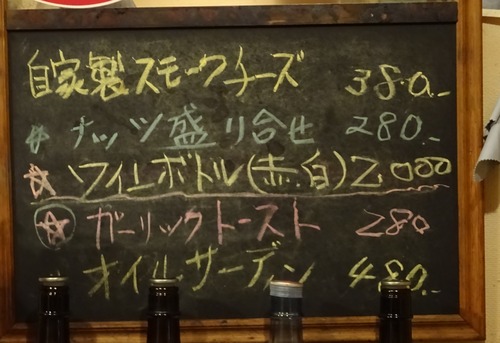 自家製スモークチーズ 380.-
# ナッツ盛り合せ 280.-
☆ ワインボトル(赤.白) 2,000
☆ ガーリックトースト 280
オイルサーディン 480.-